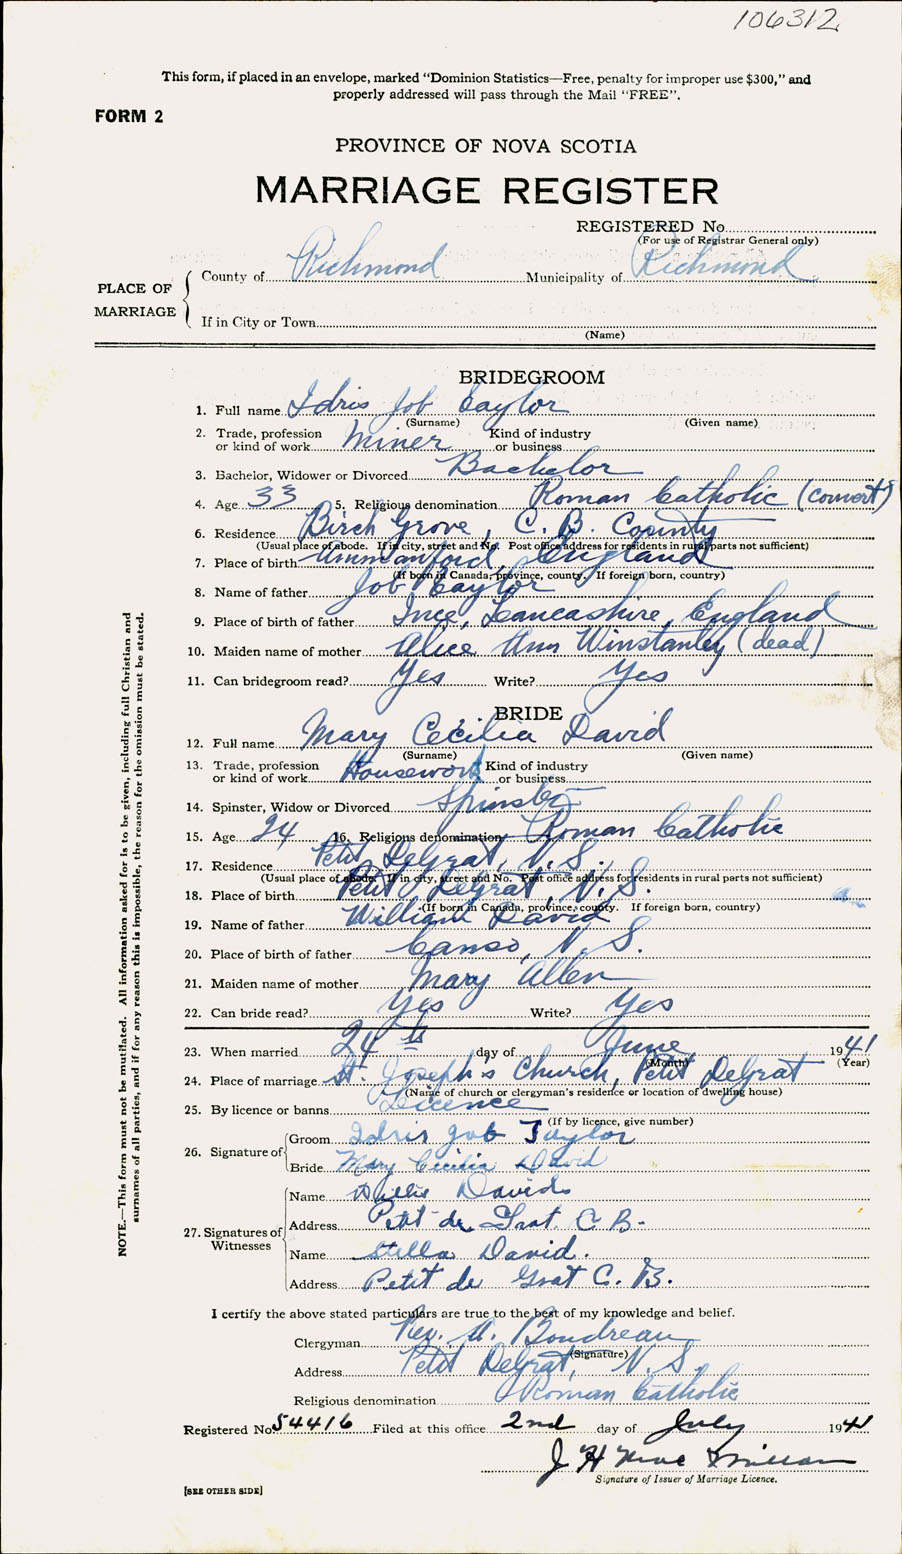 106312
This form, if placed in an envelope, marked “Dominion Statistics—Free, penalty for improper use $300,” and
properly addressed will pass through the Mail “FREE”.
FORM 2
PROVINCE OF NOVA SCOTIA
MARRIAGE REGISTER
REGISTERED No.
(For use of Registrar General only)
PLACE OF MARRIAGE
County of Richmond Municipality of Richmond
If in City or Town
(Name)
BRIDEGROOM
1. Full name Idris Job Taylor
(Surname) (Given name)
2. Trade, profession or kind of work Miner Kind of industry or business
3. Bachelor, Widower or Divorced Bachelor
4. Age 33 5. Religious denomination Roman Catholic (convert)
6. Residence Birch Grove, C. B. County
(Usual place of abode. If in city, street and No. Post office address for residents in rural parts not sufficient)
7. Place of birth Ammanford, England
(If born in Canada, province, county. If foreign born, country)
8. Name of father Job Taylor
9. Place of birth of father Ince, Lancashire, England
10. Maiden name of mother Alice Ann Winstanley (dead)
11. Can bridegroom read? Yes Write? Yes
BRIDE
12. Full name Mary Cecilia David
(Surname) (Given name)
13. Trade, profession or kind of work Housework Kind of industry or business
14. Spinster, Widow or Divorced Spinster
15. Age 24 16. Religious denomination Roman Catholic
17. Residence Petit DeGrat, N. S.
(Usual place of abode. If in city, street and No. Post office address for residents in rural parts not sufficient)
18. Place of birth Petit DeGrat, N. S.
(If born in Canada, province, county. If foreign born, country)
19. Name of father William David
20. Place of birth of father Canso, N. S.
21. Maiden name of mother Mary Allen
22. Can bride read? Yes Write? Yes
23. When married 24th day of June 1941
(Month) (Year)
24. Place of marriage St. Joseph's Church, Petit DeGrat
(Name of church or clergyman's residence or location of dwelling house)
25. By licence or banns Licence
(If by licence, give number)
26. Signature of
Groom Idris Job Taylor
Bride Mary Cecilia David
27. Signatures of Witnesses
Name Davids
Address Petit de Grat C B.
Name Stella David.
Address Petit de Grat C. B.
I certify the above stated particulars are true to the best of my knowledge and belief.
Clergyman Rev. A. Boudreau
(Signature)
Address Petit DeGrat, N. S.
Religious denomination Roman Catholic
Registered No. 54416 Filed at this office 2nd day of July 1941
J H
Signature of Issuer of Marriage Licence.
[SEE OTHER SIDE]
NOTE.—This form must not be mutilated. All information asked for is to be given, including full Christian and
surnames of all parties, and if for any reason this is impossible, the reason for the omission must be stated.